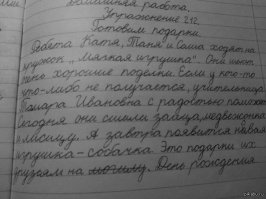 Домашняя работа.
Упражнение 212.
Готовим подарки.
Ребята Катя, Таня и Саша ходят на
кружок „Мягкая игрушка". Они шьют
очень хорошие поделки. Если у кого-то
что-либо не получается, учительница
Тамара Ивановна с радостью поможет.
Сегодня они сшили зайца, медвежонка
и лисицу. А завтра появится новая
игрушка-собачка. Это подарки их
друзьям на могилу. День рождения